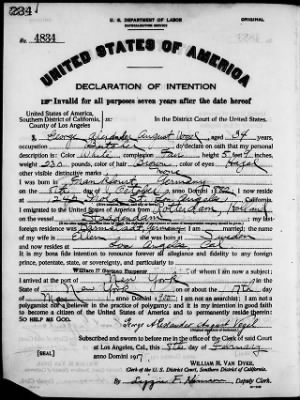 234
U. S. DEPARTMENT OF LABOR
NATURALIZATION SERVICE
ORIGINAL
No. 4834
UNITED STATES OF AMERICA
DECLARATION OF INTENTION
Invalid for all purposes seven years after the date hereof
United States of America,
Southern District of California, ss:
County of Los Angeles
In the District Court of the United States.
I, George Alexander August Vogel, aged 34 years,
occupation Butcher, do declare on oath that my personal
description is: Color White, complexion Fair, height 5 feet 9 inches,
weight 230 pounds, color of hair Brown, color of eyes Hazel
other visible distinctive marks None
I was born in Germany
on the day of October, anno Domini 1882; I now reside
at Los Angeles, California.
I emigrated to the United States of America from Rotterdam, Holland
on the vessel; my last
foreign residence was Germany; I am married; the name
of my wife is Ellen; she was born in Sweden
and now resides at Los Angeles Cal
It is my bona fide intention to renounce forever all allegiance and fidelity to any foreign
prince, potentate, state, or sovereignty, and particularly to
William II German Emperor, of whom I am now a subject;
I arrived at the port of New York, in the
State of New York, on or about the 7th day
of, anno Domini; I am not an anarchist; I am not a
polygamist nor a believer in the practice of polygamy; and it is my intention in good faith
to become a citizen of the United States of America and to permanently reside therein:
SO HELP ME GOD.
George Alexander August Vogel
Subscribed and sworn to before me in the office of the Clerk of said Court
at Los Angeles, Cal., this day of January
anno Domini 1917.
[SEAL]
WILLIAM M. VAN DYKE,
Clerk of the U. S. District Court, Southern District of California.
By, Deputy Clerk.